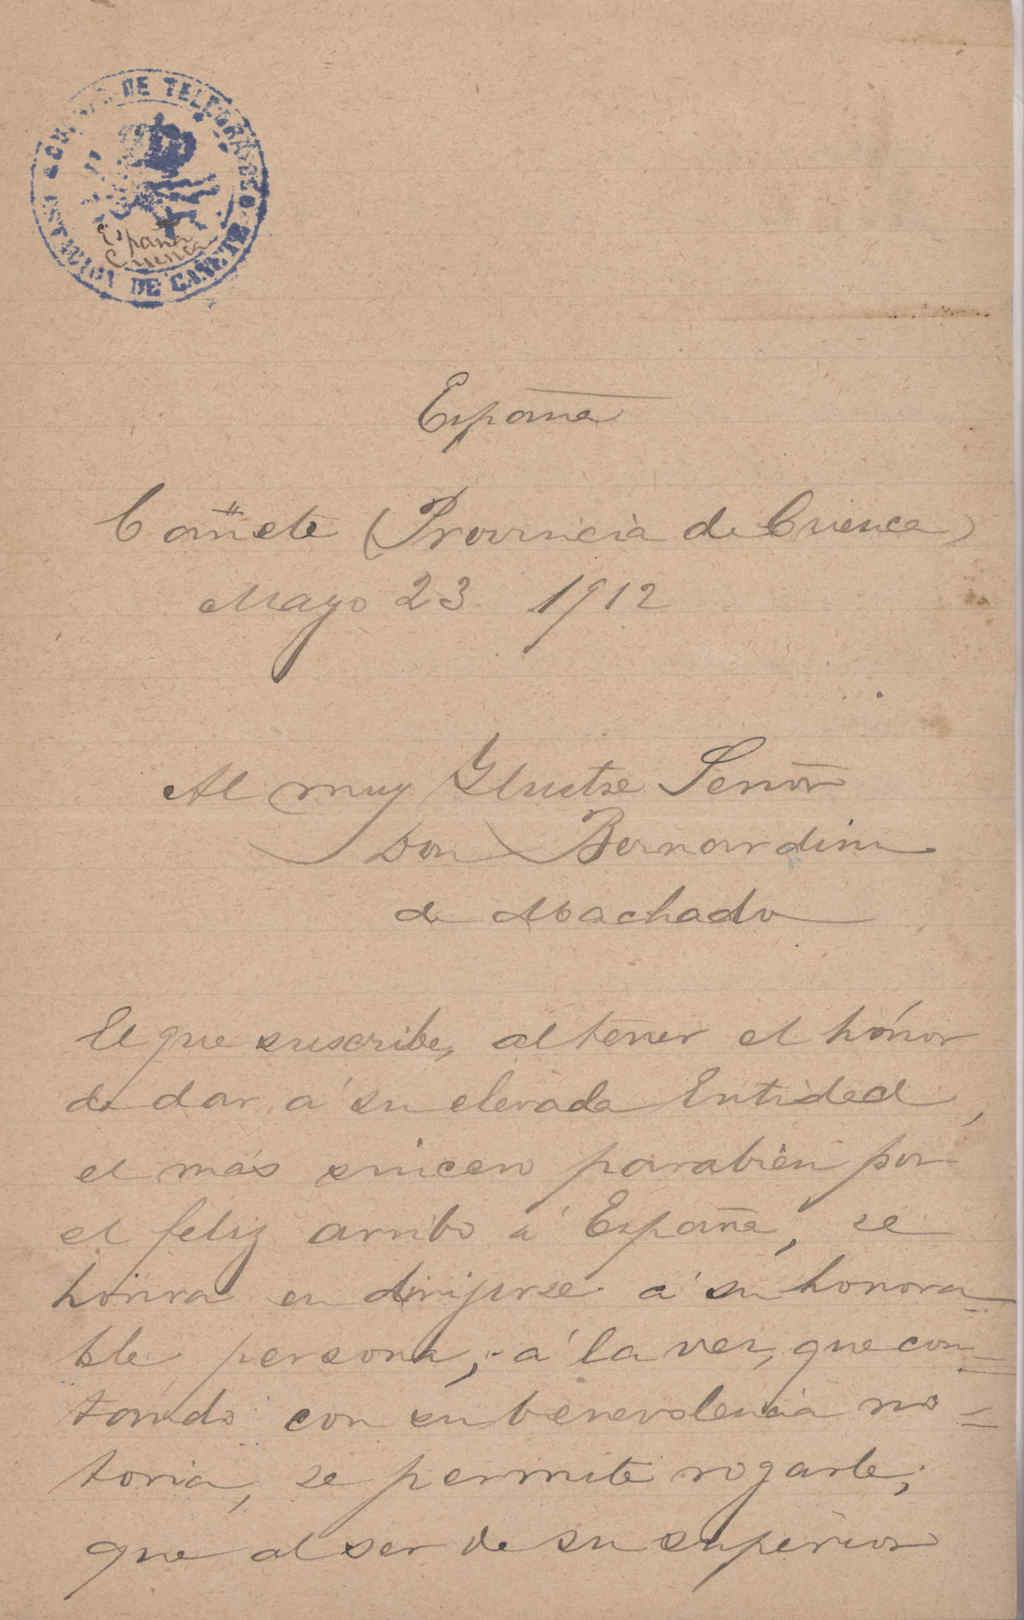 CUERPO DE TELEGRAFOS
ESTACION DE CAÑETE
España
Cuenca
España
Cañete (Provincia de Cuenca)
Mayo 23 1912
Al muy Ylustre Señor
Don Bernardino
de Machado
El que suscribe, al tener el hónor
de dar, á su elevada Entidad,
el más sincero parabién por
el feliz arribo á España, se
honra en dirijirse á su honora
ble persona, á la vez, que con=
tando con su benevolencia no=
toria, se permite rogarle,
que al ser de su superior